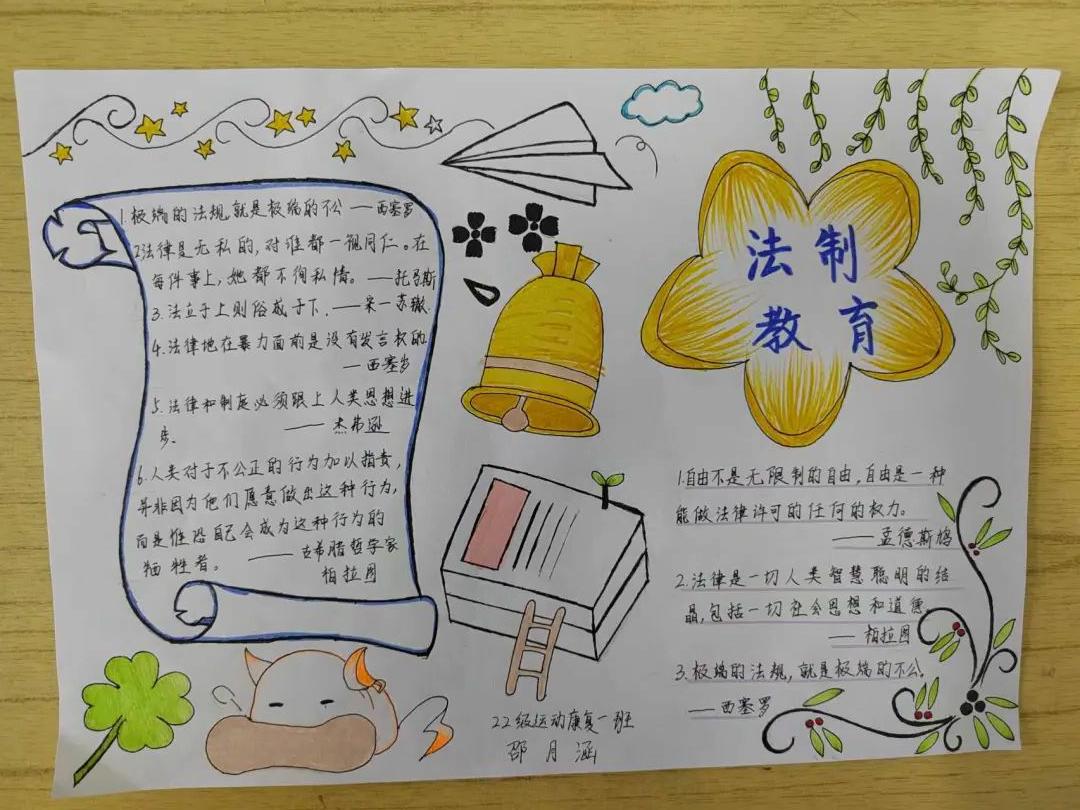 1.极端的法规,就是极端的不公 ——西塞罗
2法律是无私的,对谁都一视同仁。在
每件事上,她都不徇私情。——托马斯
3.法立于上则俗成于下.——宋—苏辙.
4.法律地在暴力面前是没有发言权的
—西塞罗
5.法律和制度必须跟上人类思想进
步. ——杰弗逊
6.人类对于不公正的行为加以指责,
并非因为他们愿意做出这种行为,
而是惟恐自己会成为这种行为的
牺牲者。 ——古希腊哲学家
柏拉图
法制
教育
1.自由不是无限制的自由,自由是一种
能做法律许可的任何的权力。
——孟德斯鸠
2.法律是一切人类智慧聪明的结
晶,包括一切社会思想和道德.
——柏拉图
3.极端的法规,就是极端的不公.
——西塞罗
22级运动康复一班
邵月涵